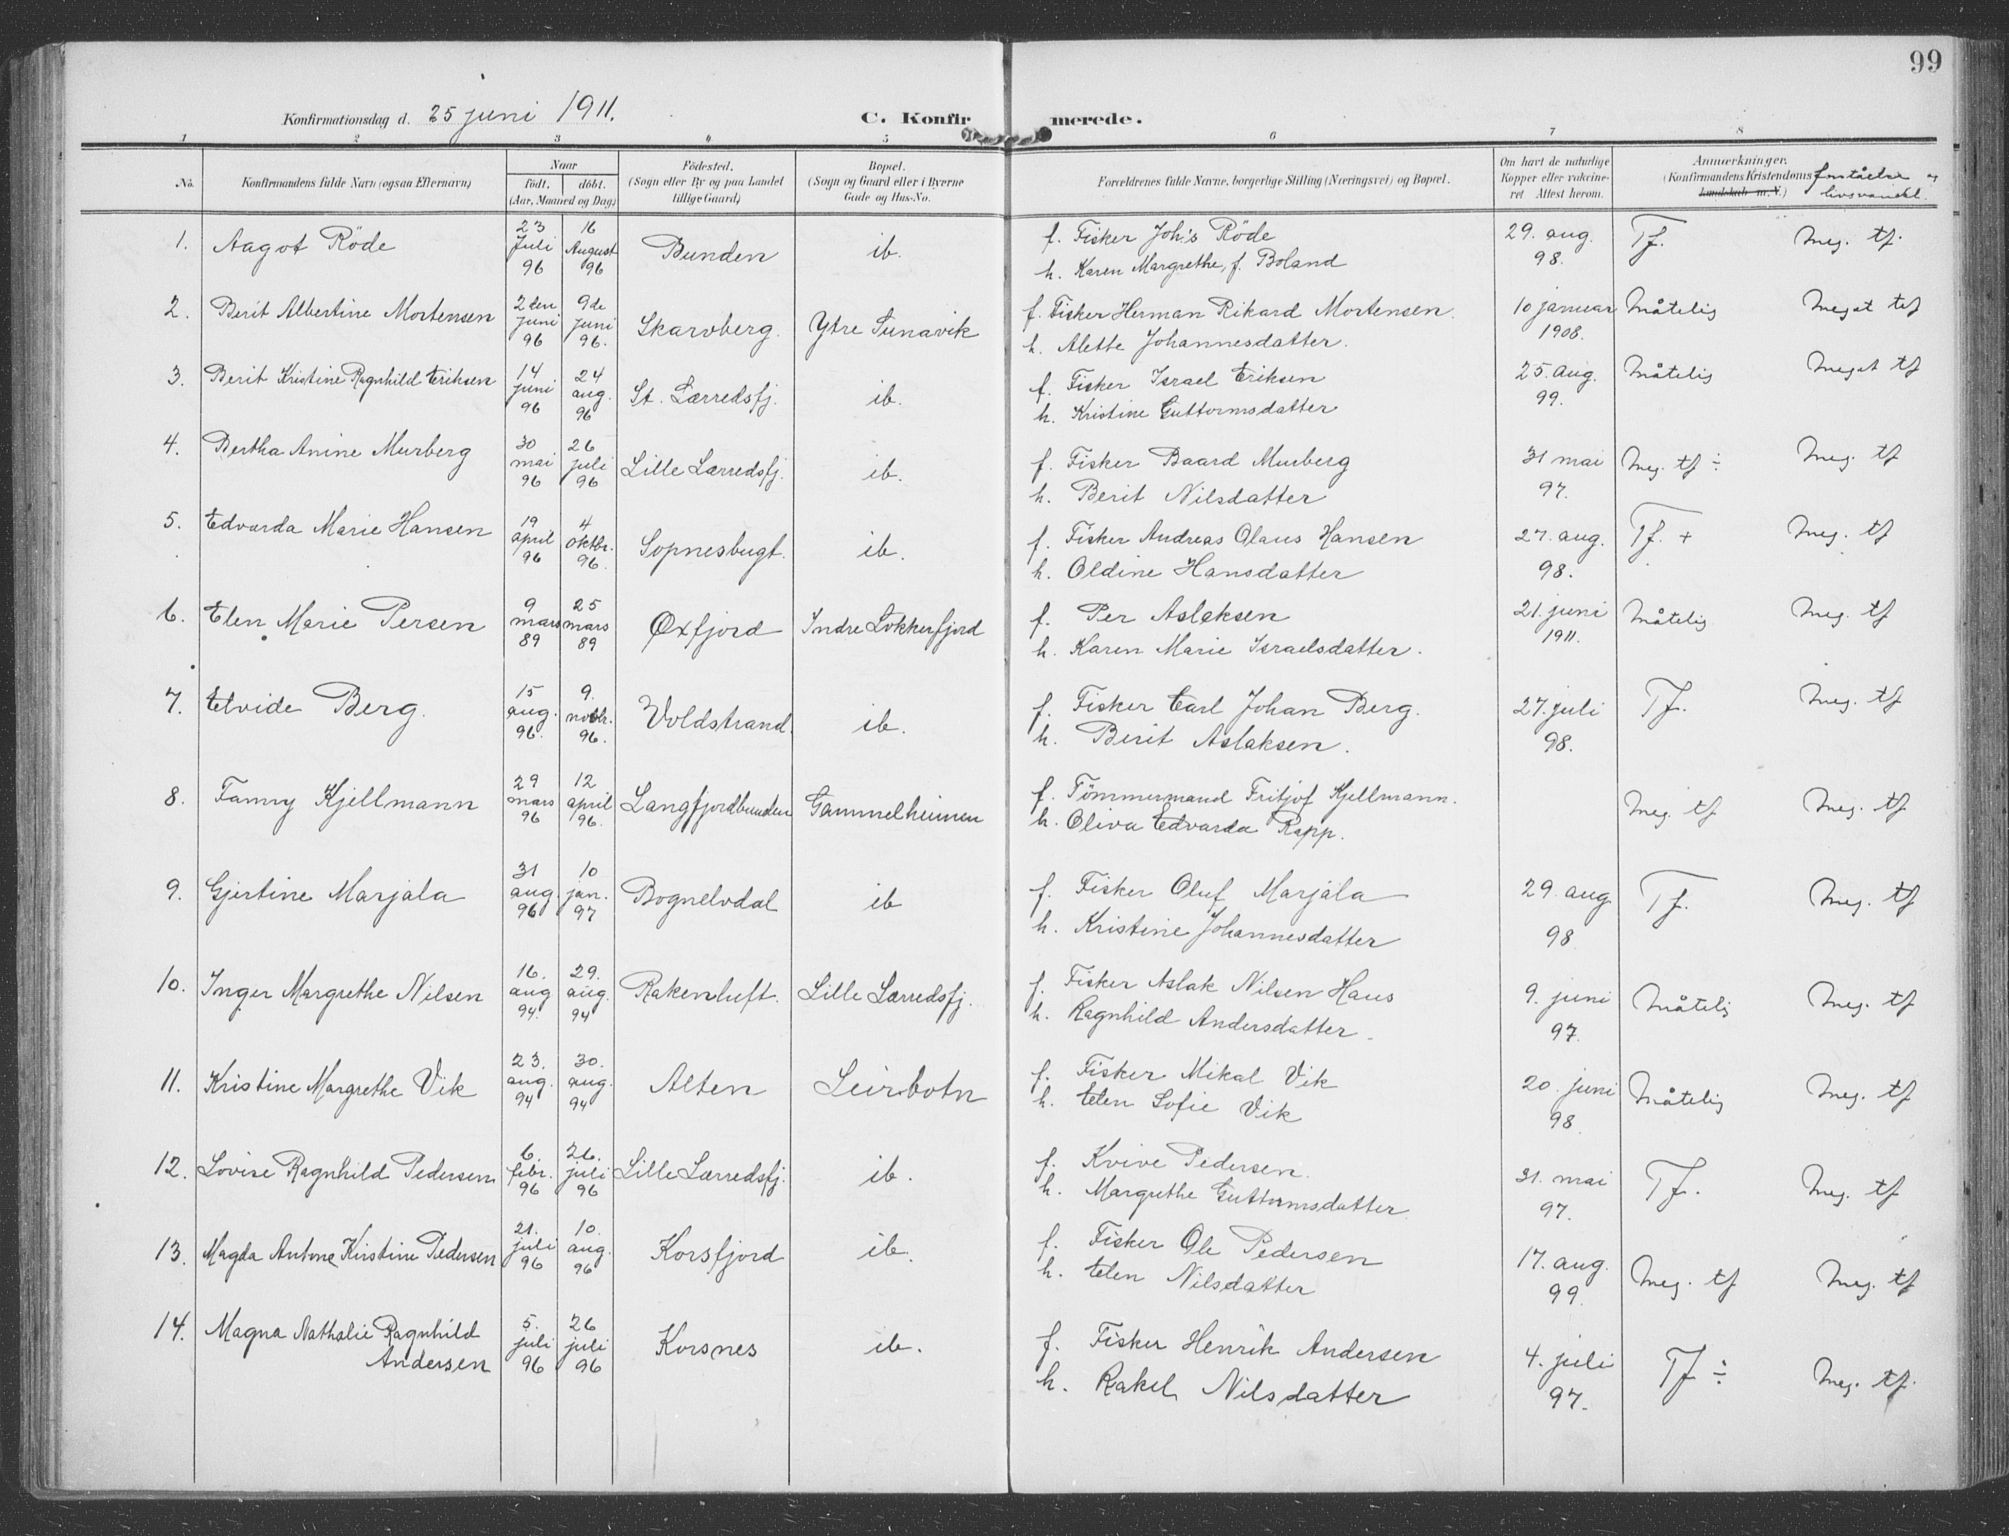 99
Konfirmationsdag d. 25 juni 1911. C. Konfirmerede.
1 2 3 4 5 6 7 8
No. Konfirmandens fulde Navn (ogsaa Efternavn) Naar født, døbt. (Aar, Maaned og Dag) Fødested. (Sogn eller By og paa Landet tillige Gaard) Bopæl. (Sogn og Gaard eller i Byerne Gade og Hus-No. Forældrenes fulde Navne, borgerlige Stilling (Næringsvei) og Bopæl. Om havt de naturlige Kopper eller vaccineret Attest herom. Anmærkninger. (Konfirmandens Kristendoms kundskab m. V.) forståelse og livsvandel.
1. Aagot Röde 23 Juli 96 16 August 96 Bunden ib. f. Fisker Joh's Röde 29. aug. 98. Tf. Meg. tf.
h. Karen Margrethe, f. Boland
2. Berit Albertine Mortensen 2den juni 96 9de juni 96. Skarvberg. Ytre Tunavik f. Fisker Herman Rikard Mortensen. 10 januar 1908. Måtelig Meget tf
h. Alette Johannesdatter.
3. Berit Kristine Ragnhild Eriksen 14 juni 96 24 aug. 96 St. Lærredsfj. ib. f. Fisker Israel Eriksen 25. aug. 99. Måtelig Meget tf
h. Kristine Guttormsdatter
4. Bertha Anine Murberg 30 mai 96 26 juli 96 Lille Lærredsfj. ib. f. Fisker Baard Murberg 31 mai 97. Meg. tf ÷ Meg. tf
h. Berit Nilsdatter
5. Edvarda Marie Hansen 19 april 96 4 oktbr. 96. Sopnesbugt. ib. f. Fisker Andreas Olaus Hansen 27. aug. 98. Tf. + Meg. tf
h. Oldine Hansdatter
6. Elen Marie Persen 9 mars 89 25 mars 89 Øxfjord Indre Lokkerfjord f. Per Aslaksen 21. juni 1911. Måtelig Meg. tf
h. Karen Marie Israelsdatter.
7. Elvide Berg. 15 aug. 96. 9. novbr. 96. Voldstrand. ib. f. Fisker Carl Johan Berg. 27. juli 98. Tf. Meg. tf
h. Berit Aslaksen.
8. Fanny Kjellmann 29 mars 96 12 april 96. Langfjordbunden Gammelheimen f. Tömmermand Fritjof Kjellmann. Meg. tf Meg. tf
h. Oliva Edvarda Rapp.
9. Gjertine Marjala 31 aug. 96 10 jan. 97 Bognelvdal ib f. Fisker Oluf Marjala 29. aug 98 Tf. Meg. tf
h. Kristine Johannesdatter
10. Inger Margrethe Nilsen 16. aug 94. 29. aug. 94 Rakenluft. Lille Lærredsfj. f. Fisker Aslak Nilsen Haus 9. juni 97. Måtelig Meg. tf
h. Ragnhild Andersdatter.
11. Kristine Margrethe Vik 23. aug. 94 30. aug. 94 Alten Leirbotn f. Fisker Mikal Vik 20. juni 98. Måtelig Meg. tf
h. Elen Sofie Vik
12. Lovise Ragnhild Pedersen 6. febr. 96 26. juli 96 Lille Lærredsfj. ib. f. Kvive Pedersen. 31. mai 97. Tf. Meg. tf
h. Margrethe Guttormsdatter.
13. Magda Antone Kirstine Pedersen 21. juli 96 10. aug. 96 Korsfjord ib. f. Fisker Ole Pedersen 17. aug. 99. Meg. tf Meg. tf
h. Elen Nilsdatter
14. Magna Nathalie Ragnhild 5. juli 96 26 juli 96 Korsnes ib. f. Fisker Henrik Andersen 4. juli 97. Tf ÷ Meg. tf.
Andersen h. Rakel Nilsdatter